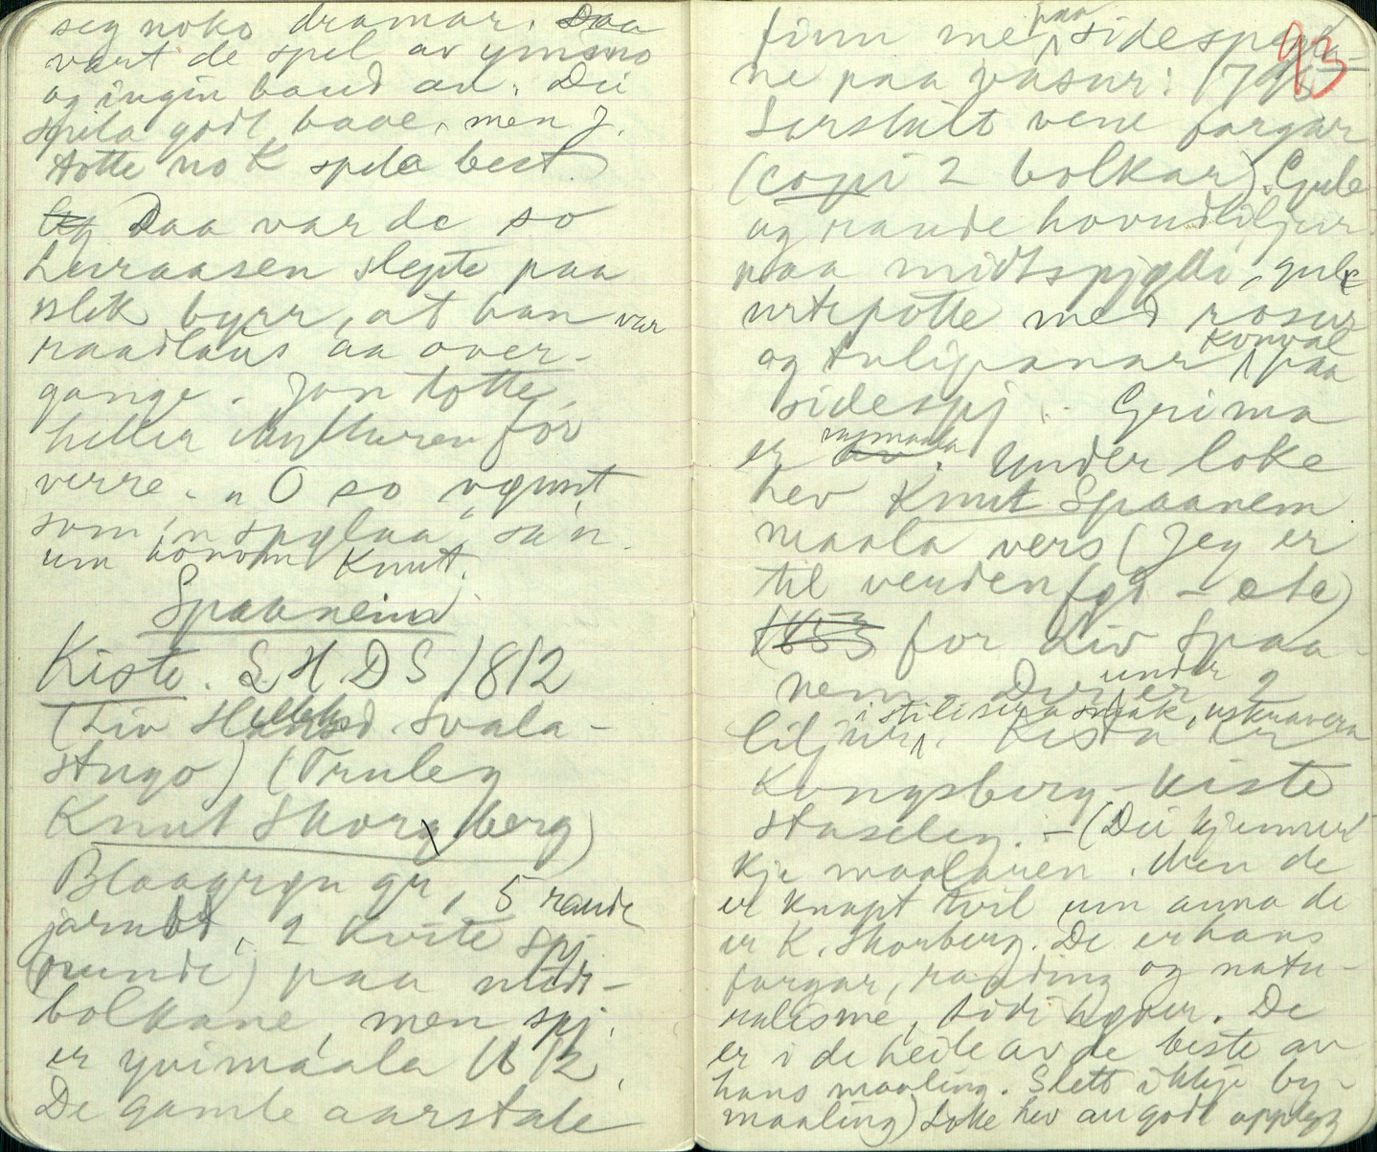 seg noko dramar. Daa
vart de spel av ymmo
og ingin baud an. Dei
spila godt baae, men J.
totte no K spela best.
Og Daa var de so
Leiraasen slepte paa
slik byrr, at han var
raadlaus aa over-
gange. Jon totte,
heller Mylluren for
verre. "O so vgunt
som in
um honom Knut.
Spaaneim
Kiste. L H D S 1812
(Liv Svala-
stugo) (Truleg
Knut Skorgberg)
Blaagrøn gr, 5 raude
jarnb, 2 kvite spj
(runde) paa midt-
bolkane, men spj.
er yvimaala 1812.
De gamle aarstale
93
finn me paa sidespegla-
ne paa vasur: 179
Serskilt vene fargar
(copi 2 bolkar). Gule
og raude hovudliljur
paa midtspjølli, gule
urtepotte med rosur
og tulipanar konval paa
sidespj. Grima
er avmaala. Under loke
hev Knut Spaanem
maala vers (Jeg er
til verden fød - etc)
1853 for Liv Spaa-
nem. Dur er under 2
liljur, i stilisera snak, uskravera. Kista er
Kongsberg-kiste
staseleg. - (Dei kjenner
kje maalaren. Men de
er knapt tvil um anna de
er K. Skorberg. De er hans
fargar, raading og natu-
ralisme, sidi hyver. De
er i de heile av de beste av
hans maaling. Slett ikkje by-
maaling) Loke hev au godt opplegg